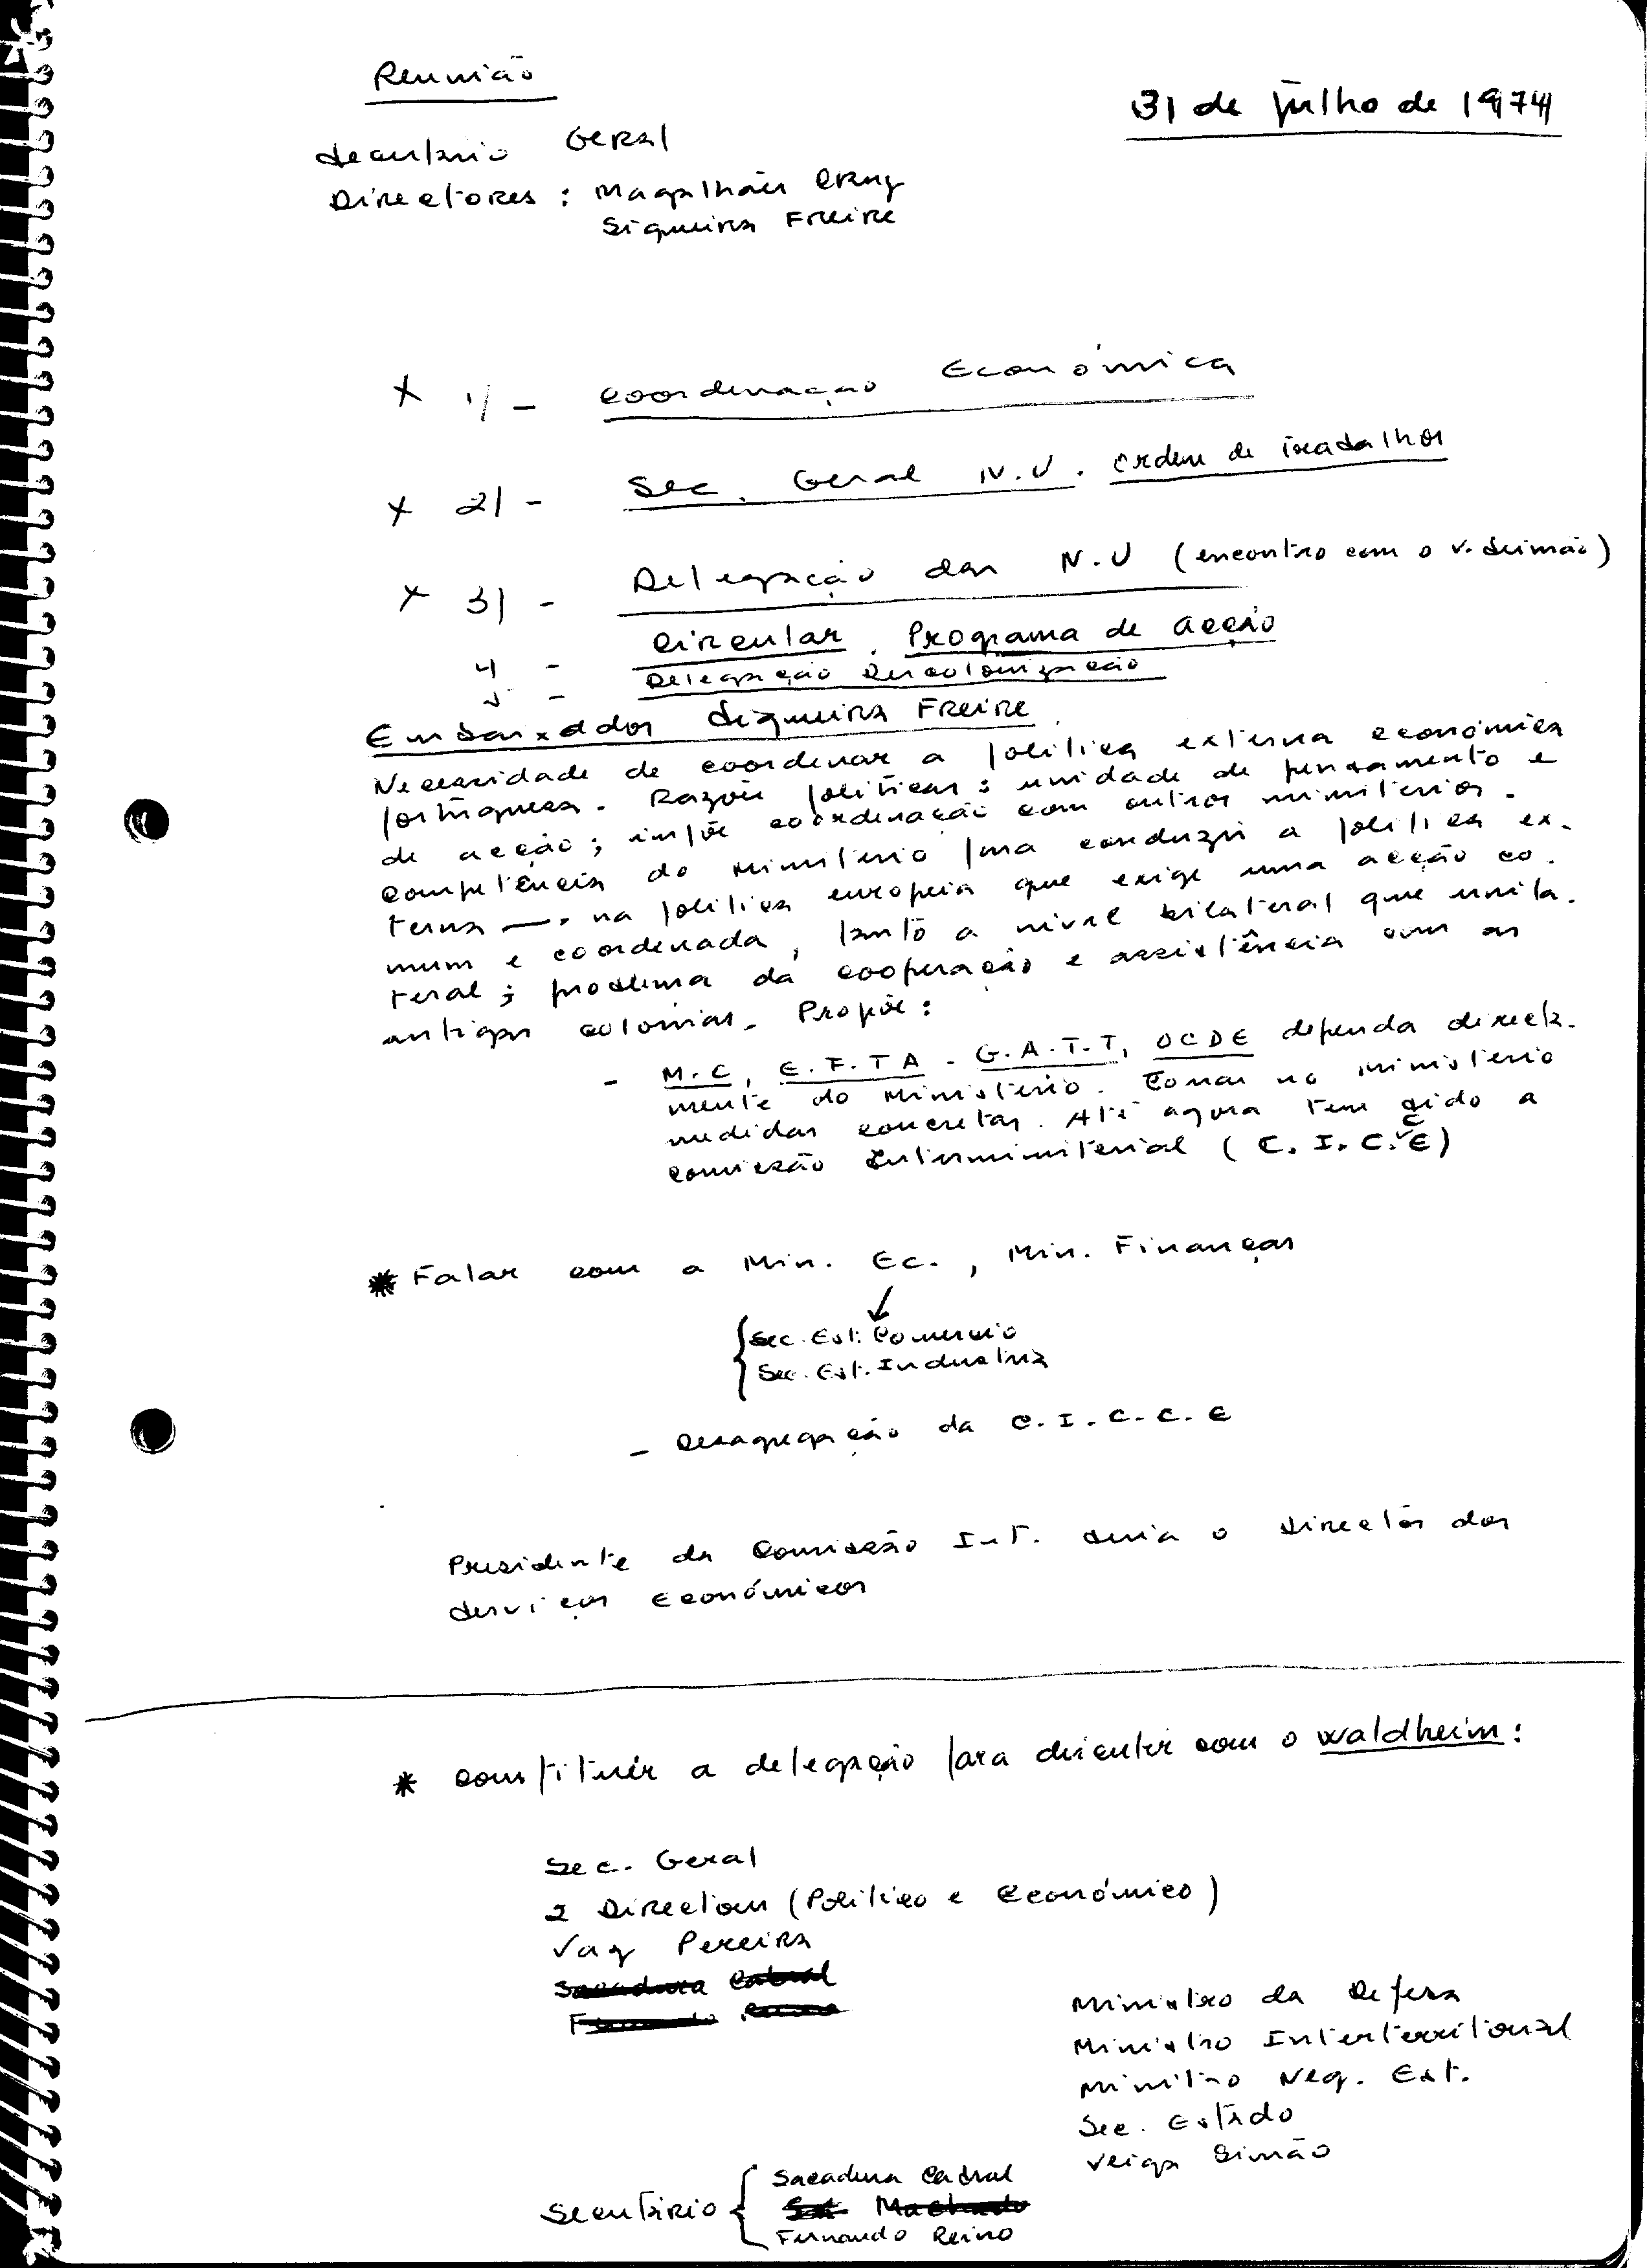 Reunião
31 de Julho de 1974
Secretário Geral
Directores: Magalhães Cruz
Siqueira Freire
x 1/ - Coordenação Económica
x 2/ - Sec. Geral N.U. Ordem de trabalhos
x 3/ - Delegação das N.U (encontro com o V. Simão)
4 - Circular. Programa de acção
5 - Delegação Descolonização
Embaixador Siqueira Freire
Necessidade de coordenar a política externa económica
portuguesa. Razões políticas: unidade de pensamento e
de acção; impõe coordenação com outros ministérios.
Competência do Ministério para conduzir a política ex-
terna — na política europeia que exige uma acção co-
mum e coordenada, tanto a nível bilateral que unila-
teral; problema da cooperação e assistência com as
antigas colónias. Propõe:
- M.C, E.F.TA - G.A.T.T, OCDE dependa directa-
mente do Ministério. Tomar no Ministério
medidas concretas. Até agora tem sido a
comissão Interministerial (C. I. C. C E)
* Falar com a Min. Ec., Min. Finanças
Sec. Est. Comercio
Sec. Est. Industria
- Desagregação da C.I.C.C.E
Presidente da Comissão Int. seria o Director dos
Serviços Económicos
* Constituir a delegação para discutir com o Waldheim:
Sec. Geral
2 Directores (Político e Económico)
Vaz Pereira
Sacadura Cabral
Ministro da Defesa
Ministro Interterritorial
Ministro Neg. Est.
Sec. Estado
Veiga Simão
Secretário { Sacadura Cabral
Machado
Fernando Reino